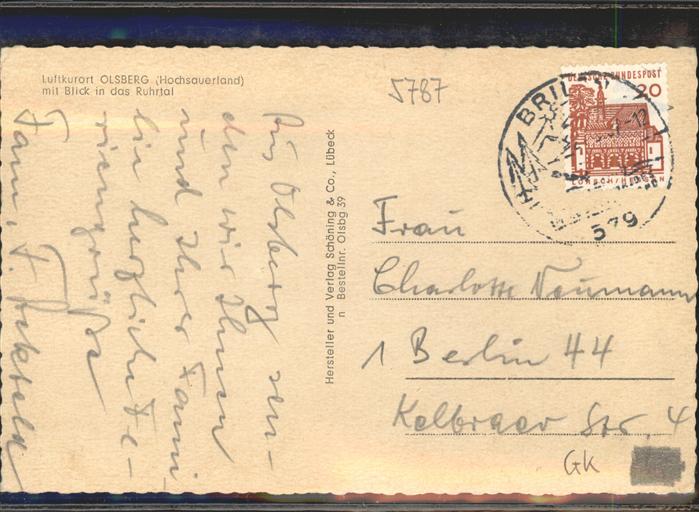 Luftkurort OLSBERG (Hochsauerland)
mit Blick in das Ruhrtal
5787
Aus Olsberg sen-
den wir Ihnen
und Ihrer Fami-
lie herzliche Fe-
riengrüße
Fam. F.
Hersteller und Verlag Schöning & Co., Lübeck
n Bestellnr. Olsbg 39
DEUTSCHE BUNDESPOST
20
LORSCH/HESSEN
BRIL
579
Frau
Charlotte Neumann
1 Berlin 44
Kelbraer Str. 4
GK